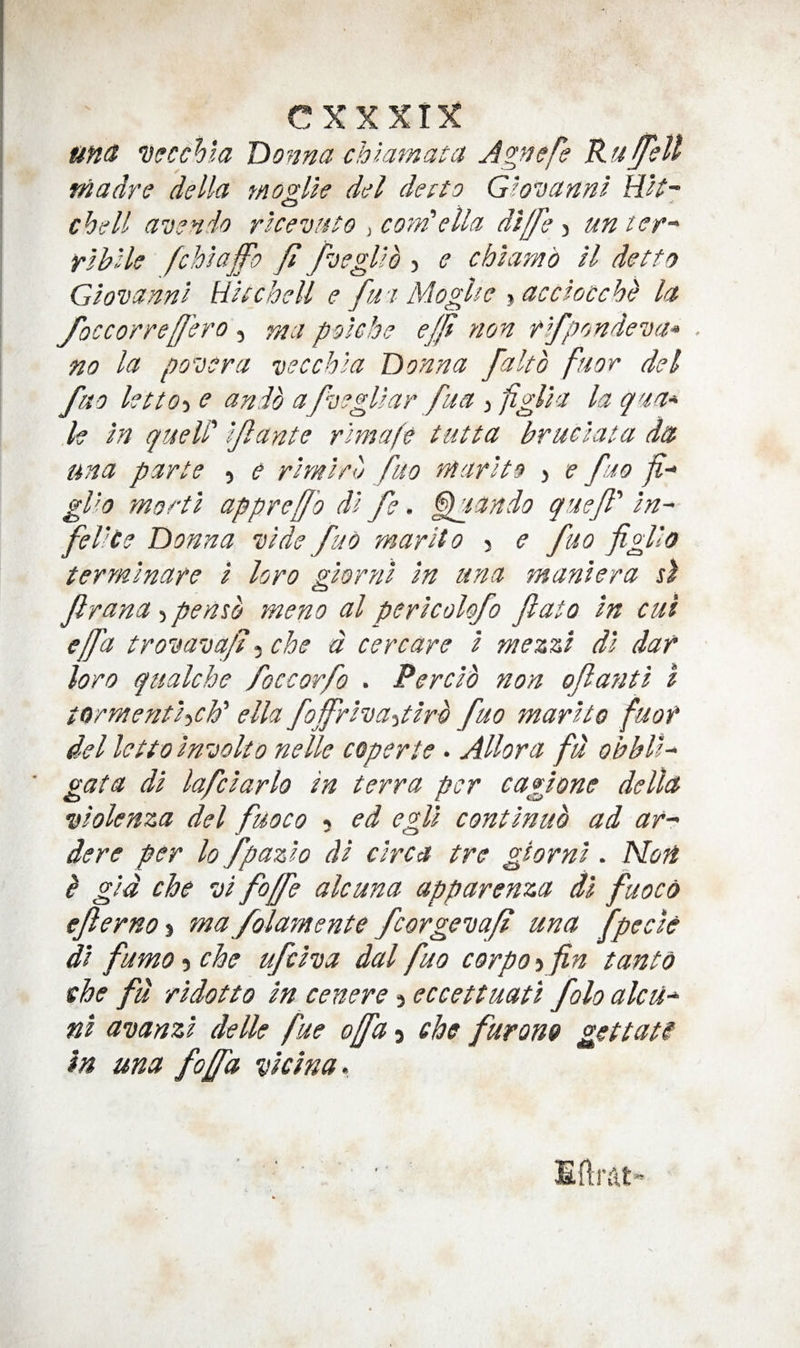 CXXXIX
una vecchia Donna chiamata Agneſe Ruſſell
madre della moglie del detto Giovanni Hit-
chell avendo ricevuto, com'ella diſſe, un ter-
ribile ſchiaffo ſi ſvegliò, e chiamò il detto
Giovanni Hitchell e ſua Moglie, acciocchè la
ſoccorreſſero, ma poiche eſſi non riſpondeva-
no la povera vecchia Donna ſaltò fuor del
ſuo letto, e andò a ſvegliar ſua, figlia la qua-
le in quell' iſtante rimaſe tutta bruciata da
una parte, e rimirò ſuo marito, e ſuo fi-
glio morti appreſſo di ſe. Quando queſt' in-
felice Donna vide ſuo marito, e ſuo figlio
terminare i loro giorni in una maniera sì
ſtrana, pensò meno al pericoloſo ſtato in cui
eſſa trovavaſi, che à cercare i mezzi di dar
loro qualche ſoccorſo. Perciò non oſtanti i
tormenti, ch' ella ſoffriva, tirò ſuo marito fuor
del letto involto nelle coperte. Allora fù obbli-
gata di laſciarlo in terra per cagione della
violenza del fuoco, ed egli continuò ad ar-
dere per lo ſpazio di circa tre giorni. Non
è già che vi foſſe alcuna apparenza di fuoco
eſterno, ma ſolamente ſcorgevaſi una ſpecie
di fumo, che uſciva dal ſuo corpo, fin tanto
che fù ridotto in cenere, eccettuati ſolo alcu-
ni avanzi delle ſue oſſa, che furono gettati
in una foſſa vicina.
Eſtrat-